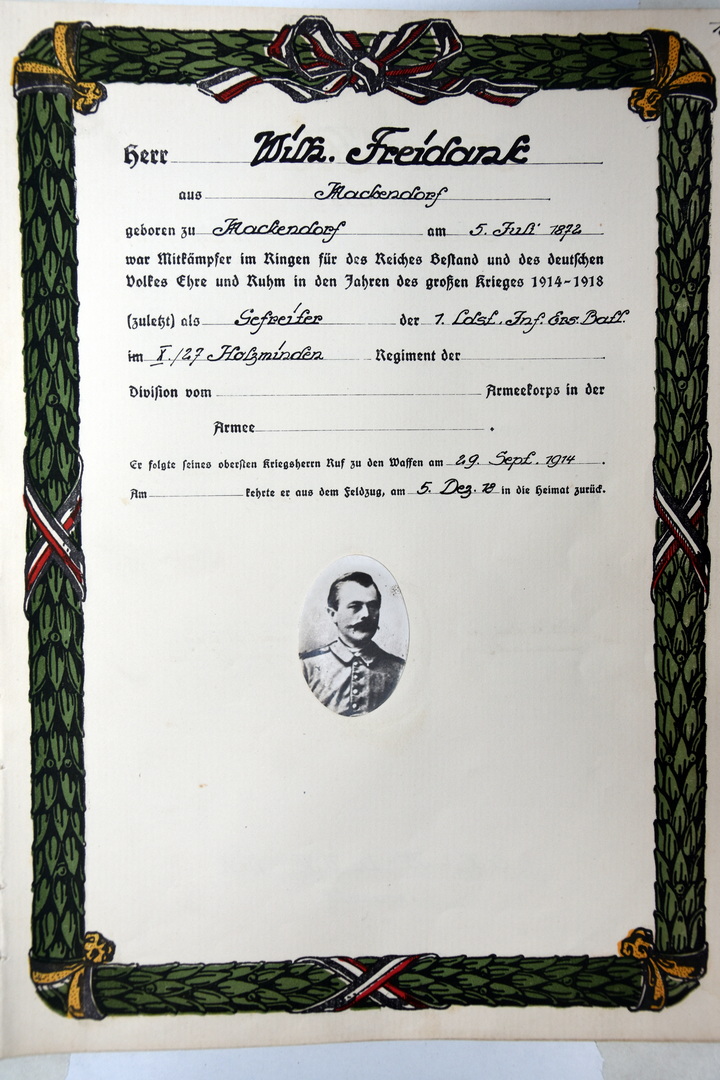 Herr Wilh. Freidank
aus Mackendorf
geboren zu Mackendorf am 5. Juli 1872
war Mitkämpfer im Ringen für des Reiches Bestand und des deutschen
Volkes Ehre und Ruhm in den Jahren des großen Krieges 1914-1918
(zuletzt) als Gefreiter der 1. Ldst. Inf. Ers. Batl.
im X./27 Holzminden Regiment der
Division vom Armeekorps in der
Armee .
Er folgte seines obersten Kriegsherrn Ruf zu den Waffen am 29. Sept. 1914 .
Am kehrte er aus dem Feldzug, am 5. Dez. 18 in die Heimat zurück.